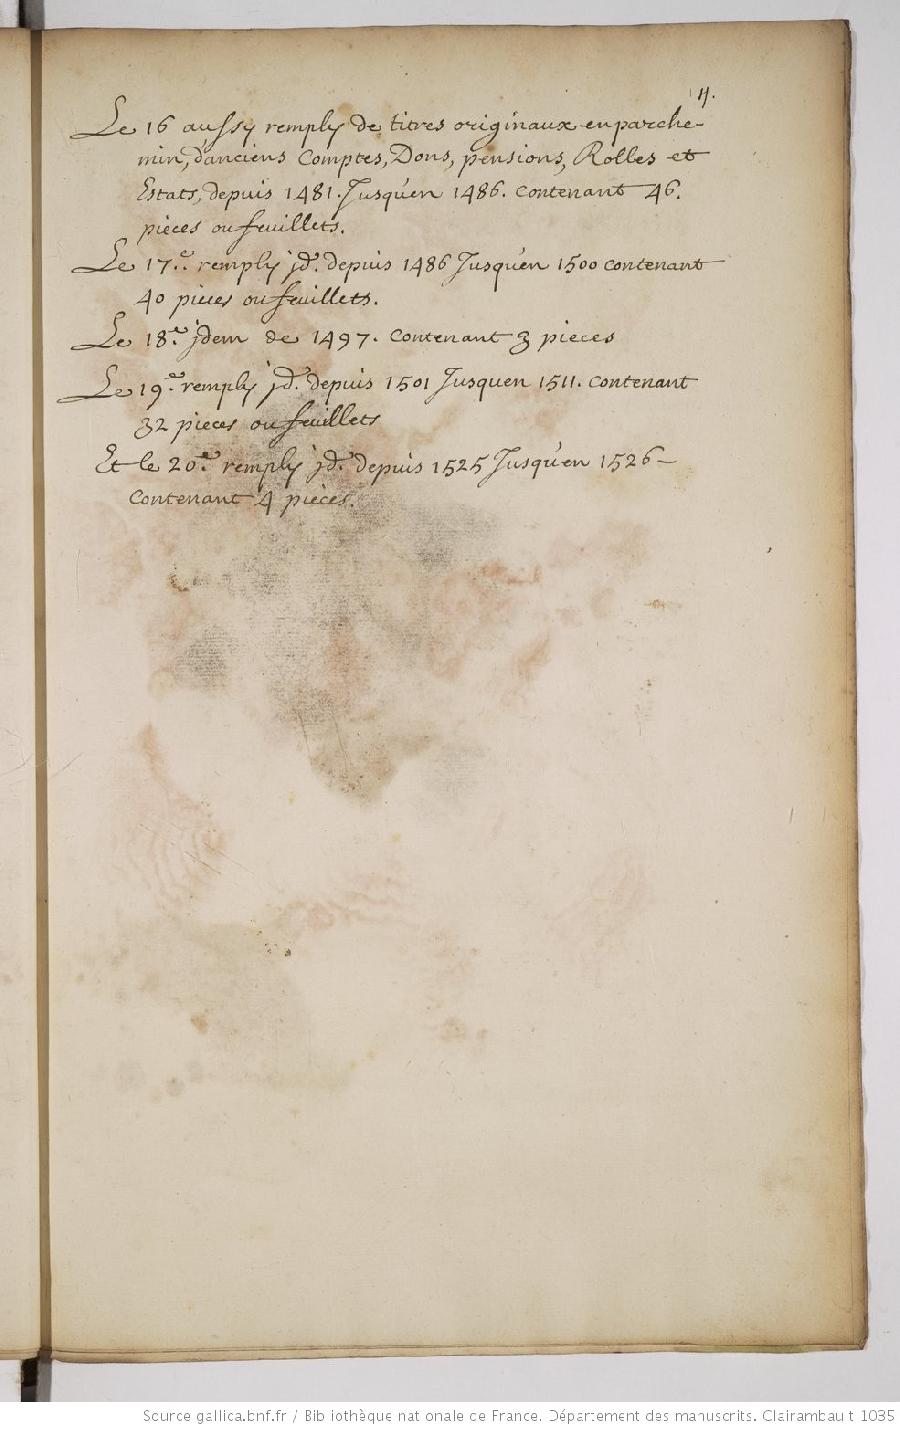 4.
Le 16 aussy remply de titres originaux en parche-
min, d'anciens Comptes, Dons, pensions, Rolles et
Estats, depuis 1481. Jusqu'en 1486. contenant 46.
pieces ou feuillets.
Le 17.e remply jd. depuis 1486 Jusqu'en 1500 contenant
40 pieces ou feuillets.
Le 18.e jdem de 1497. contenant 3 pieces
Le 19.e remply jd. depuis 1501 Jusquen 1511. contenant
32 pieces ou feuillets
Et le 20.e remply jd. depuis 1525 Jusqu'en 1526-
contenant 4 pieces.
Source gallica.bnf.fr / Bibliothèque nationale de France. Département des manuscrits. Clairambault 1035